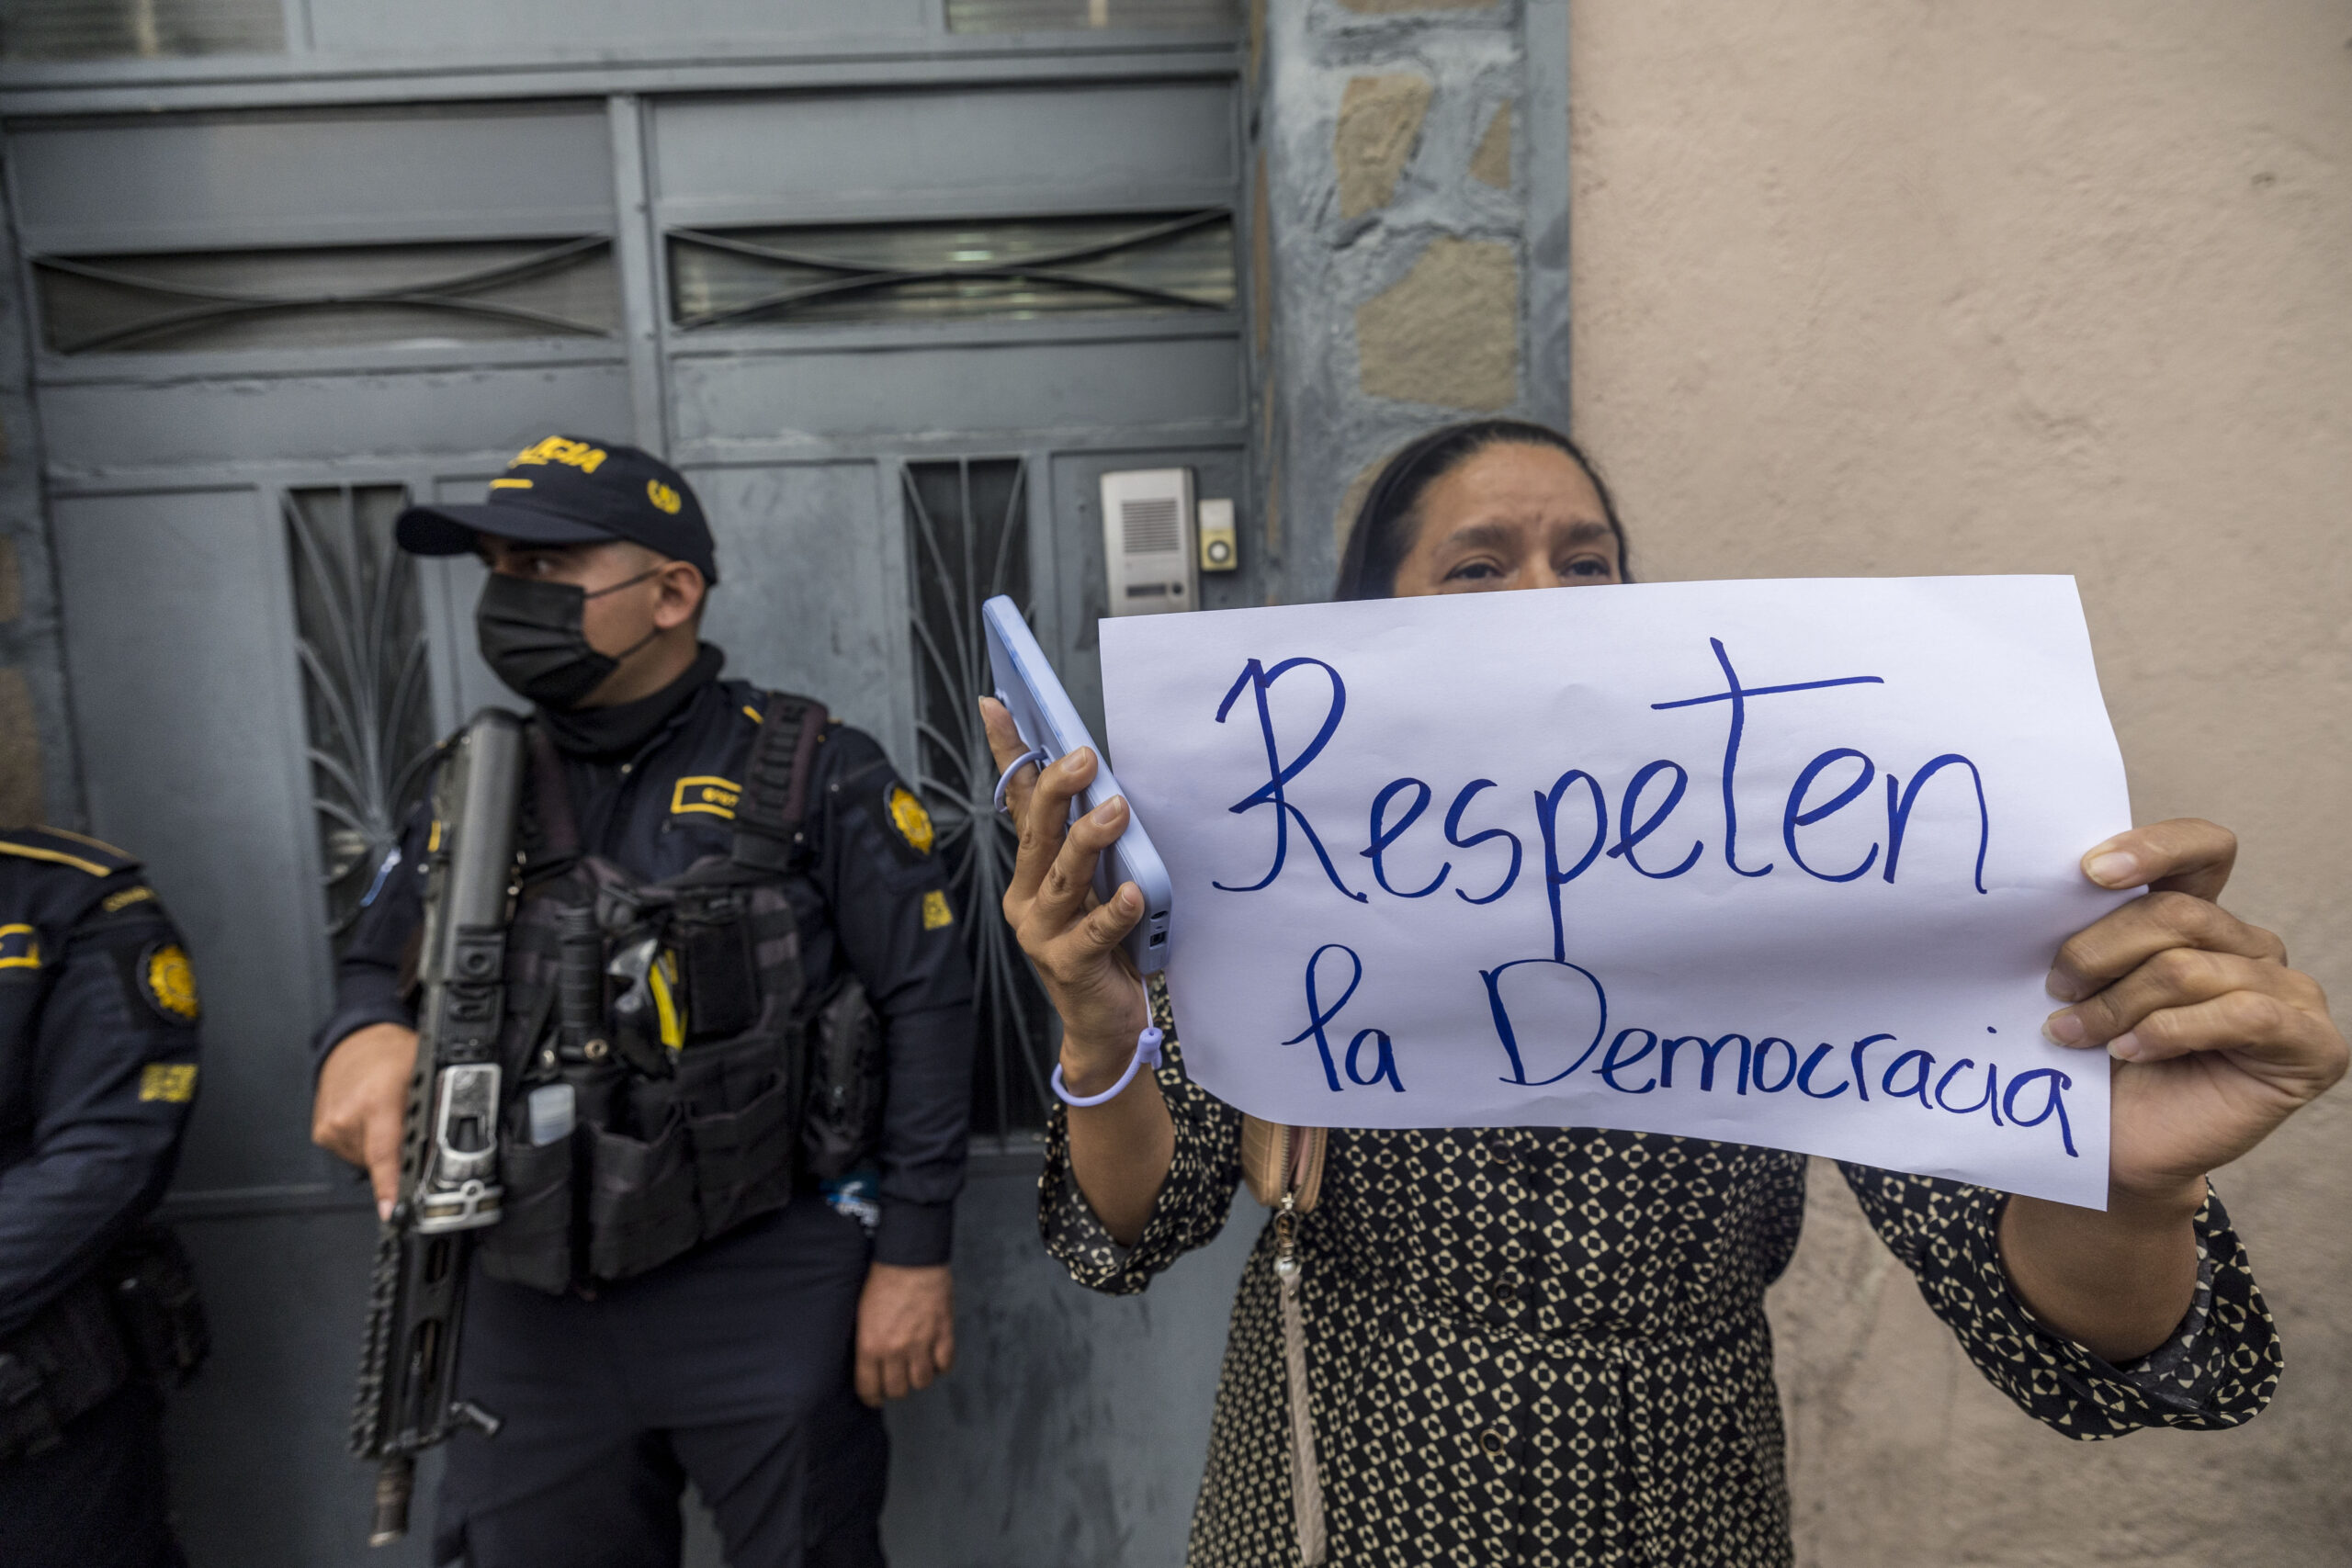 Respeten
la Democracia